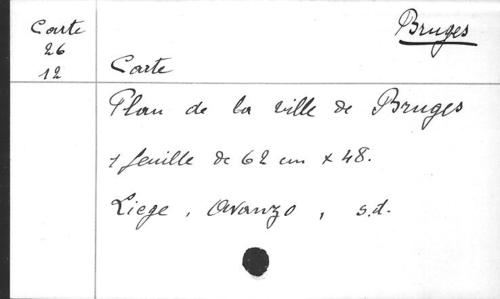 Carte
26
12
Bruges
Carte
Plan de la ville de Bruges
1 feuille de 62 cm x 48.
Liège, Avanzo, s.d.